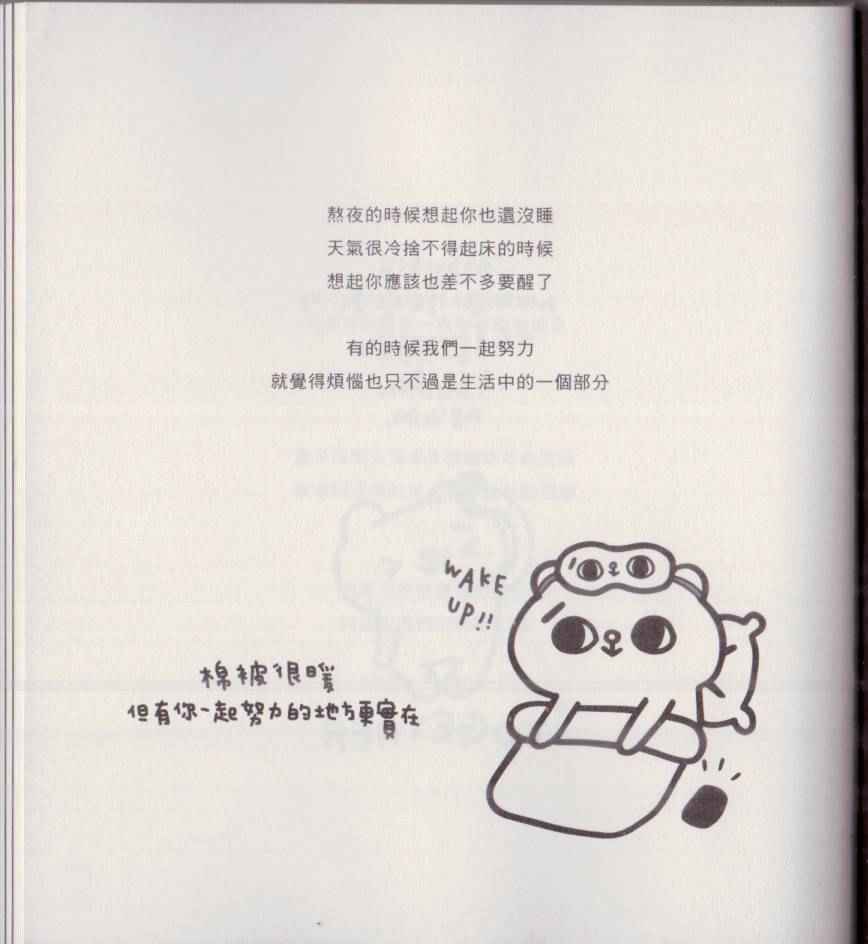 熬夜的時候想起你也還沒睡
天氣很冷捨不得起床的時候
想起你應該也差不多要醒了
有的時候我們一起努力
就覺得煩惱也只不過是生活中的一個部分
WAKE
UP!!
棉被很暖
但有你一起努力的地方更實在